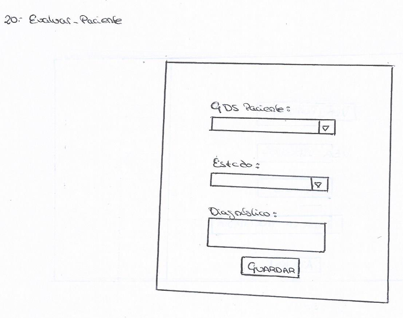 20.- Evaluar-Paciente
GDS Paciente:
Estado:
Diagnóstico:
GUARDAR